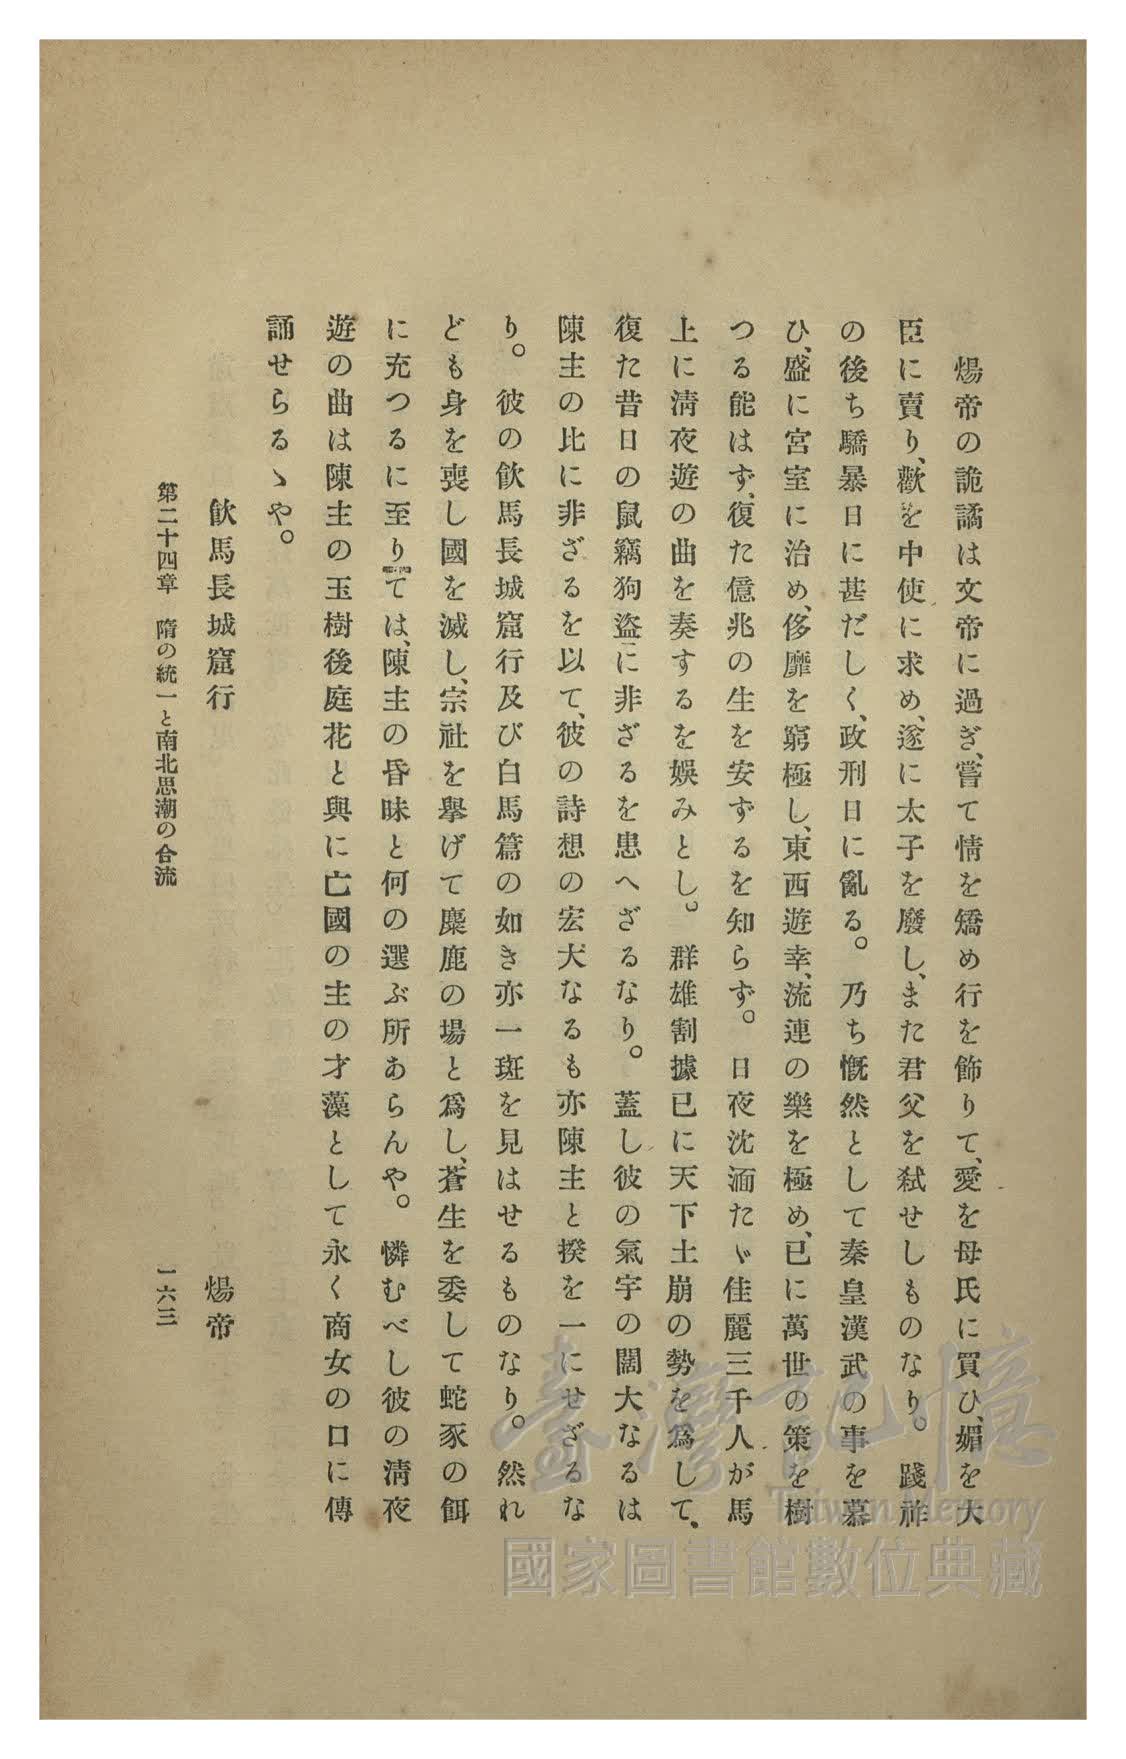 煬帝の詭譎は文帝に過ぎ、嘗て情を矯め行を飾りて、愛を母氏に買ひ、媚を大
臣に賣り、歡を中使に求め、遂に太子を廢し、また君父を弑せしものなり。踐祚
の後ち驕暴日に甚だしく、政刑日に亂る。乃ち慨然として秦皇漢武の事を慕
ひ、盛に宮室に治め、侈靡を窮極し、東西遊幸、流連の樂を極め、已に萬世の策を樹
つる能はず、復た億兆の生を安ずるを知らず。日夜沈湎たゞ佳麗三千人が馬
上に淸夜遊の曲を奏するを娛みとし。群雄割據已に天下土崩の勢を爲して、
復た昔日の鼠竊狗盜に非ざるを患へざるなり。蓋し彼の氣宇の闊大なるは
陳主の比に非ざるを以て、彼の詩想の宏大なるも亦陳主と揆を一にせざるな
り。彼の飮馬長城窟行及び白馬篇の如き亦一斑を見はせるものなり。然れ
ども身を喪し國を滅し、宗社を擧げて麋鹿の場と爲し、蒼生を委して蛇豕の餌
に充つるに至りては、陳主の昏昧と何の選ぶ所あらんや。憐むべし彼の淸夜
遊の曲は陳主の玉樹後庭花と與に亡國の主の才藻として永く商女の口に傳
誦せらるゝや。
飮馬長城窟行　煬帝
第二十四章　隋の統一と南北思潮の合流　一六三
臺灣記憶
Taiwan Memory
國家圖書館數位典藏